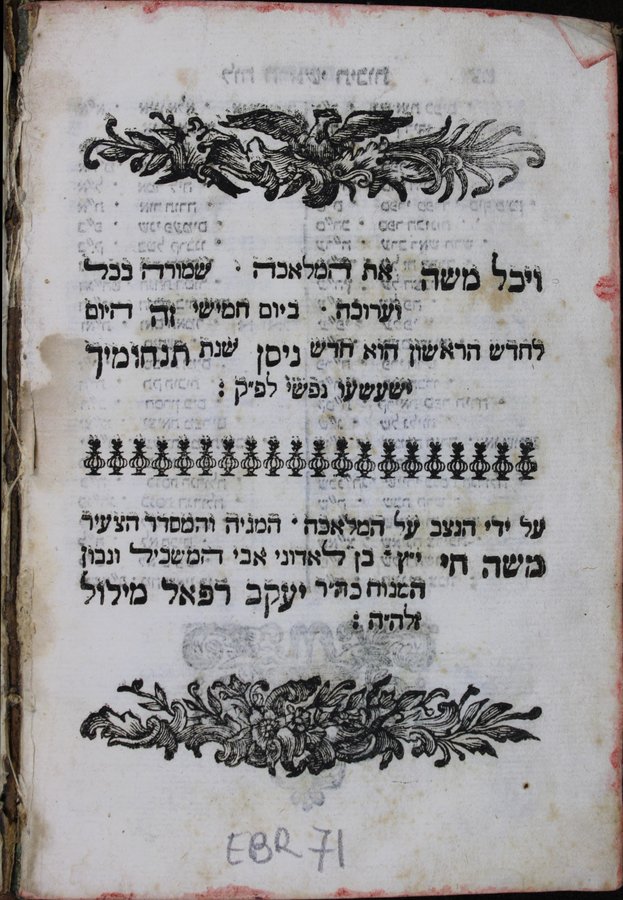 ויכל משה את המלאכה · שמורה בכל
וערוכה · ביום חמישי זה היום
לחדש הראשון הוא חדש ניסן שנת תנחומיך
ישעשעו נפשי לפ״ק :
על ידי הנצב על המלאכה · המגיה והמסדר הצעיר
משה חי יץ׳ בן לאדוני אבי המשכיל ונבון
המנוח כה״ר יעקב רפאל מילול
זלה״ה :
EBR 71